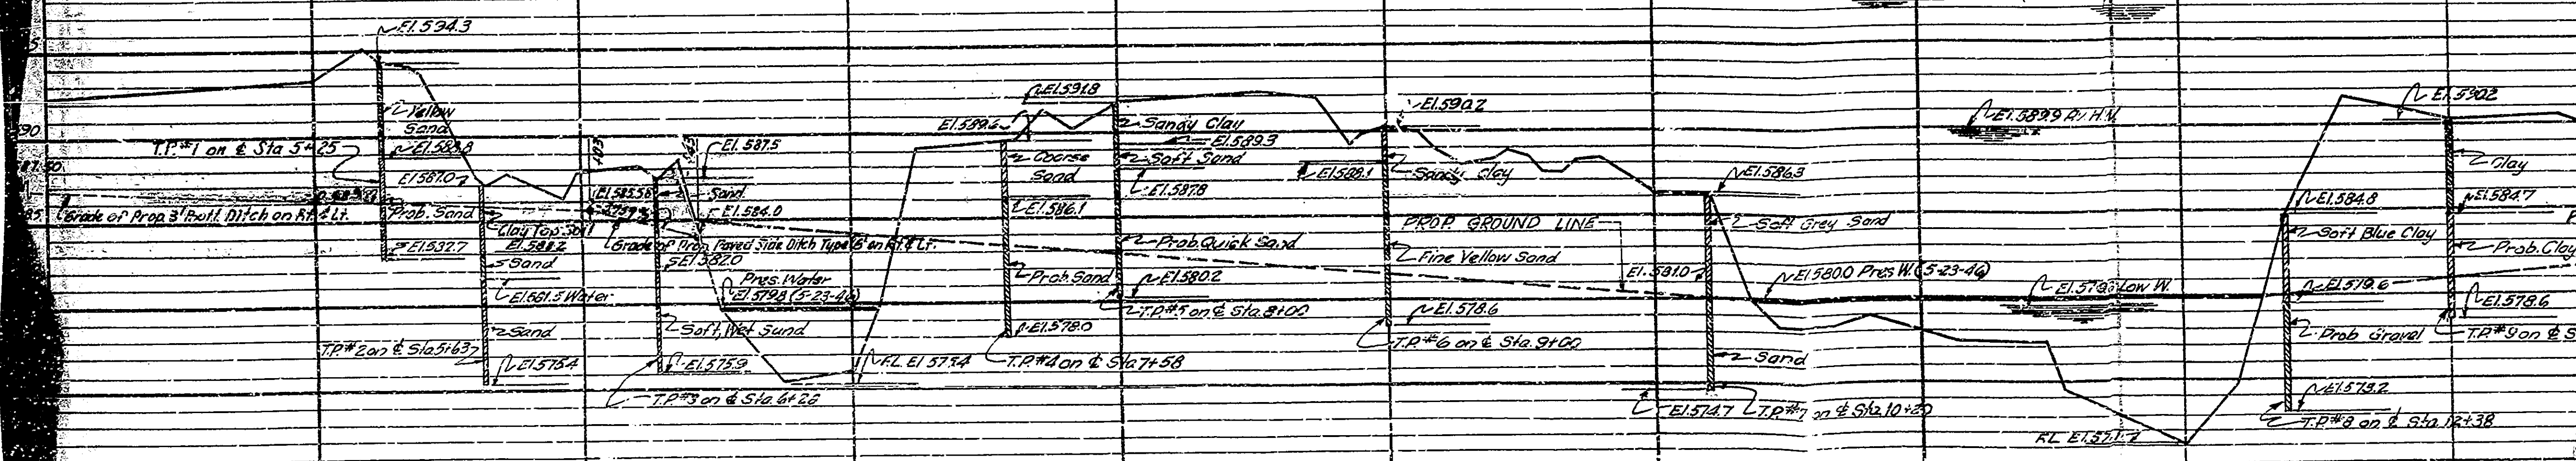 El.594.3
Yellow
Sand
T.P.#1 on ₵ Sta 5+25
El.588.8
El.587.0
Grade of Prop. 3' Bott. Ditch on Rt. & Lt.
Prob. Sand
El.582.7
Clay Top Soil
El.583.2
Sand
El.581.5 Water
Sand
T.P.#2 on ₵ Sta.5+63
El.575.4
El.585.58
El.587.5
Sand
El.584.0
Grade of Prop. Paved Side Ditch Type B on Rt. & Lt.
El.582.0
Pres. Water
El.579.8 (5-23-46)
Soft, Wet Sand
El.575.9
T.P.#3 on ₵ Sta.6+26
F.L. El 575.4
El.589.6
Coarse
Sand
El.586.1
Prob. Sand
El.578.0
T.P.#4 on ₵ Sta.7+58
El.591.8
Sandy Clay
El.589.3
Soft Sand
El.587.8
Prob. Quick Sand
El.580.2
T.P.#5 on ₵ Sta.8+00
El.590.2
El.588.1
Sandy Clay
Fine Yellow Sand
El.578.6
T.P.#6 on ₵ Sta.9+00
PROP. GROUND LINE
El.586.3
Soft Grey Sand
El.581.0
El 580.0 Pres W. (5-23-46)
Sand
El.574.7
T.P.#7 on ₵ Sta.10+20
El.589.9 Av. H.W.
Low W.
F.L. El.571.7
El.584.8
Soft Blue Clay
El.579.6
Prob Gravel
El.573.2
T.P.#8 on ₵ Sta.12+38
El.590.2
Clay
El.584.7
Prob. Clay
El.578.6
T.P.#9 on ₵ S